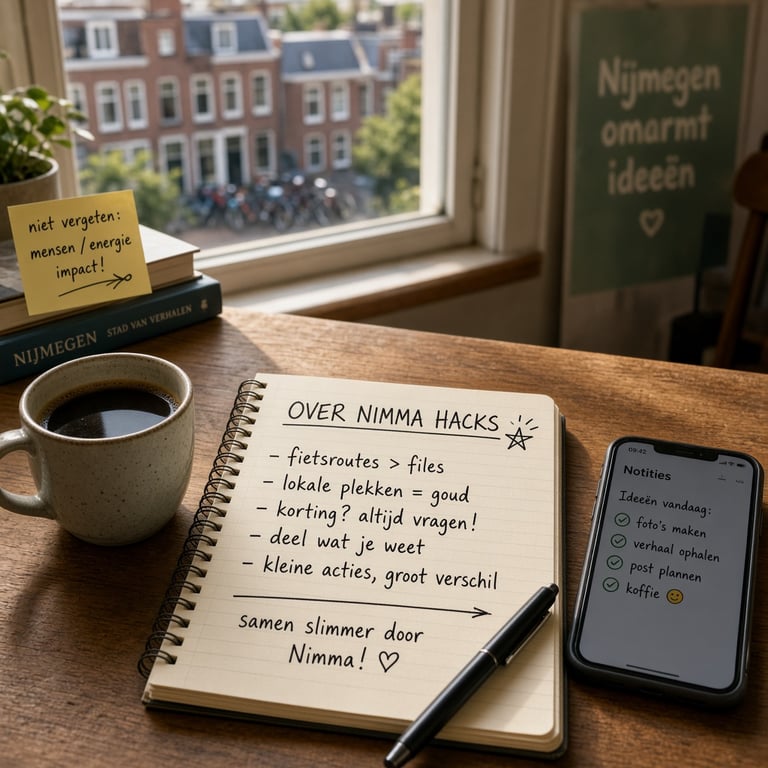 Nijmegen
omarmt
ideeën
niet vergeten:
mensen / energie
impact!
NIJMEGEN STAD VAN VERHALEN
OVER NIMMA HACKS
- fietsroutes > files
- lokale plekken = goud
- korting? altijd vragen!
- deel wat je weet
- kleine acties, groot verschil
samen slimmer door
Nimma!
09:42
Notities
Ideeën vandaag:
foto's maken
verhaal ophalen
post plannen
koffie